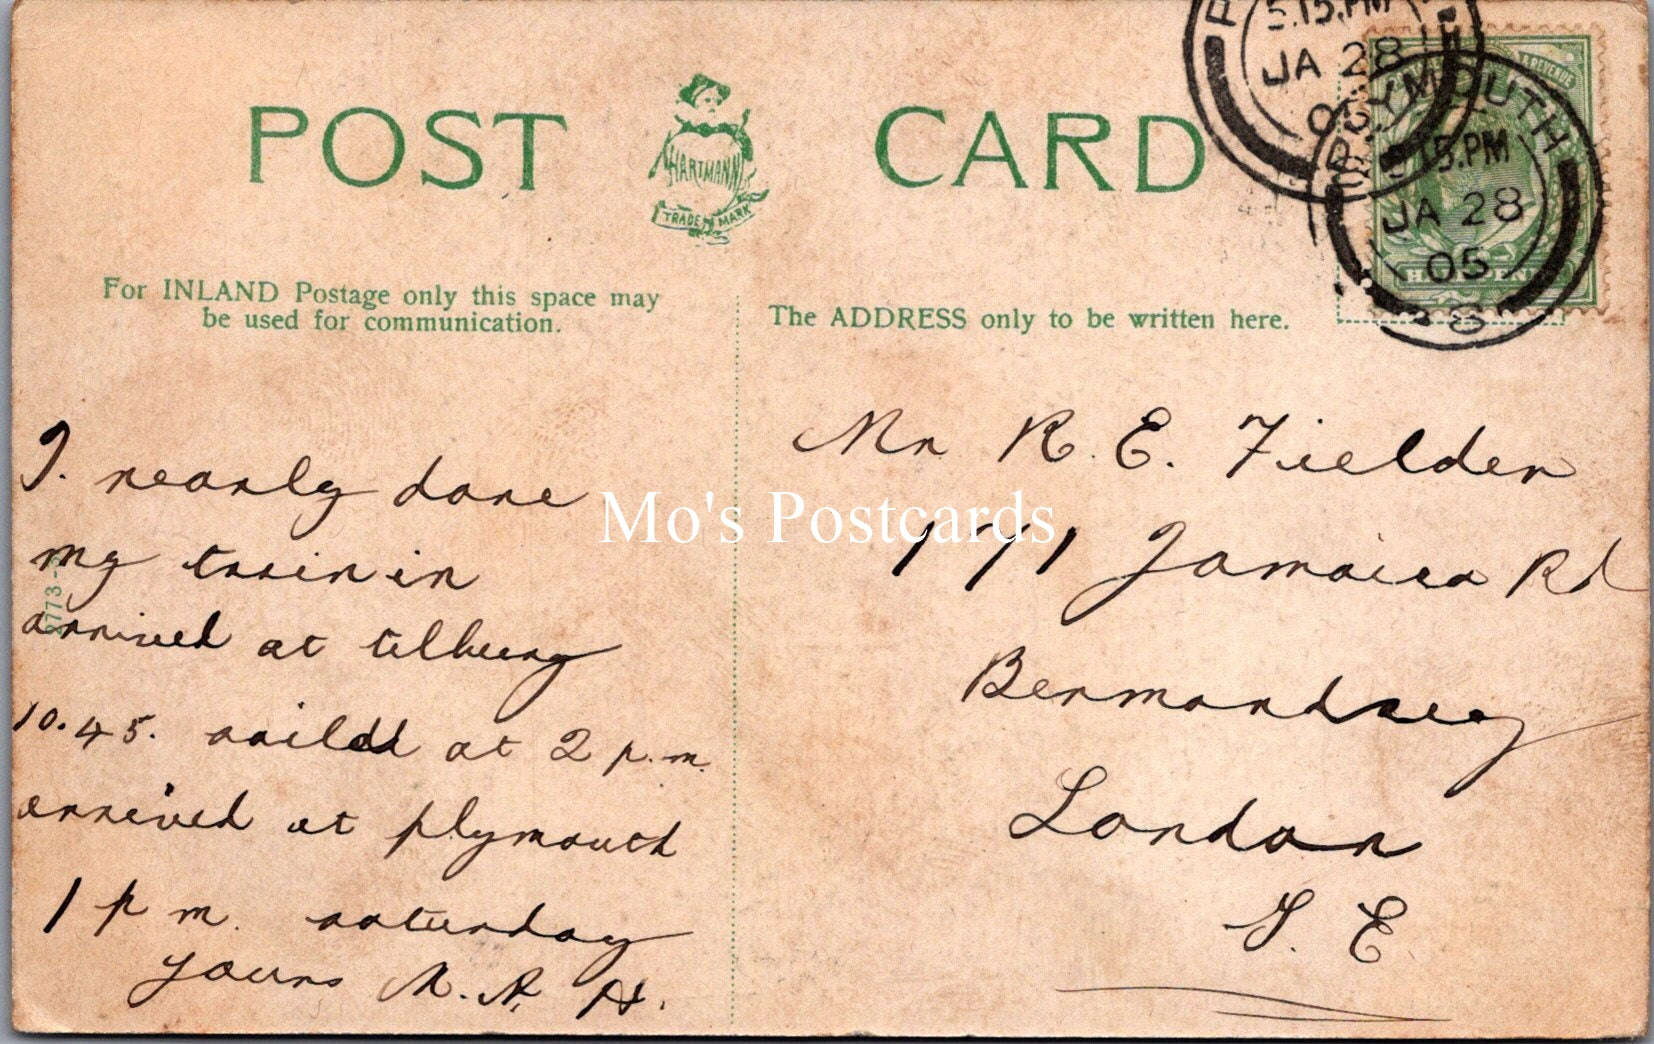 POST CARD
HARTMANN
TRADE MARK
5.15.PM
JA 28
PLYMOUTH
5.15.PM
JA 28
05
8
HALFPENNY
For INLAND Postage only this space may
be used for communication.
The ADDRESS only to be written here.
I. nearly done
my train in
arrived at tilbury
10.45. sailed at 2 p.m.
arrived at plymouth
1 p m. saturday
yours
2773
Mr R. E. Fielder
171 Jamaica Rd
Bermondsey
London
S. E.
Mo's Postcards